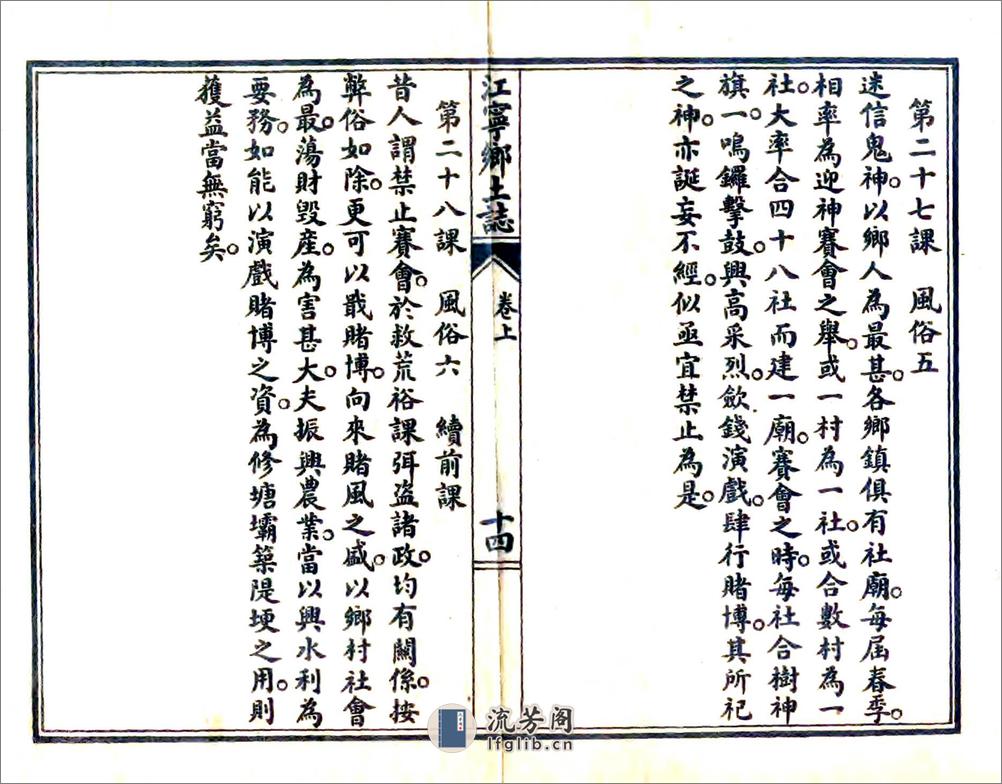 第二十七課 風俗五
迷信鬼神。以鄉人為最甚。各鄉鎮俱有社廟。每屆春季。
相率為迎神賽會之舉。或一村為一社。或合數村為一
社。大率合四十八社而建一廟。賽會之時。每社合樹神
旗。一鳴鑼擊鼓。興高采烈。歛錢演戲。肆行賭博。其所祀
之神。亦誕妄不經。似亟宜禁止為是。
江寧鄉土誌 卷上 十四
第二十八課 風俗六 續前課
昔人謂禁止賽會。於救荒裕課弭盜諸政。均有關係。按
弊俗如除。更可以戢賭博。向來賭風之盛。以鄉村社會
為最。蕩財毀産。為害甚大。夫振興農業。當以興水利為
要務。如能以演戲賭博之資。為修塘壩築隄埂之用。則
獲益當無窮矣。
流芳阁
lfglib.cn